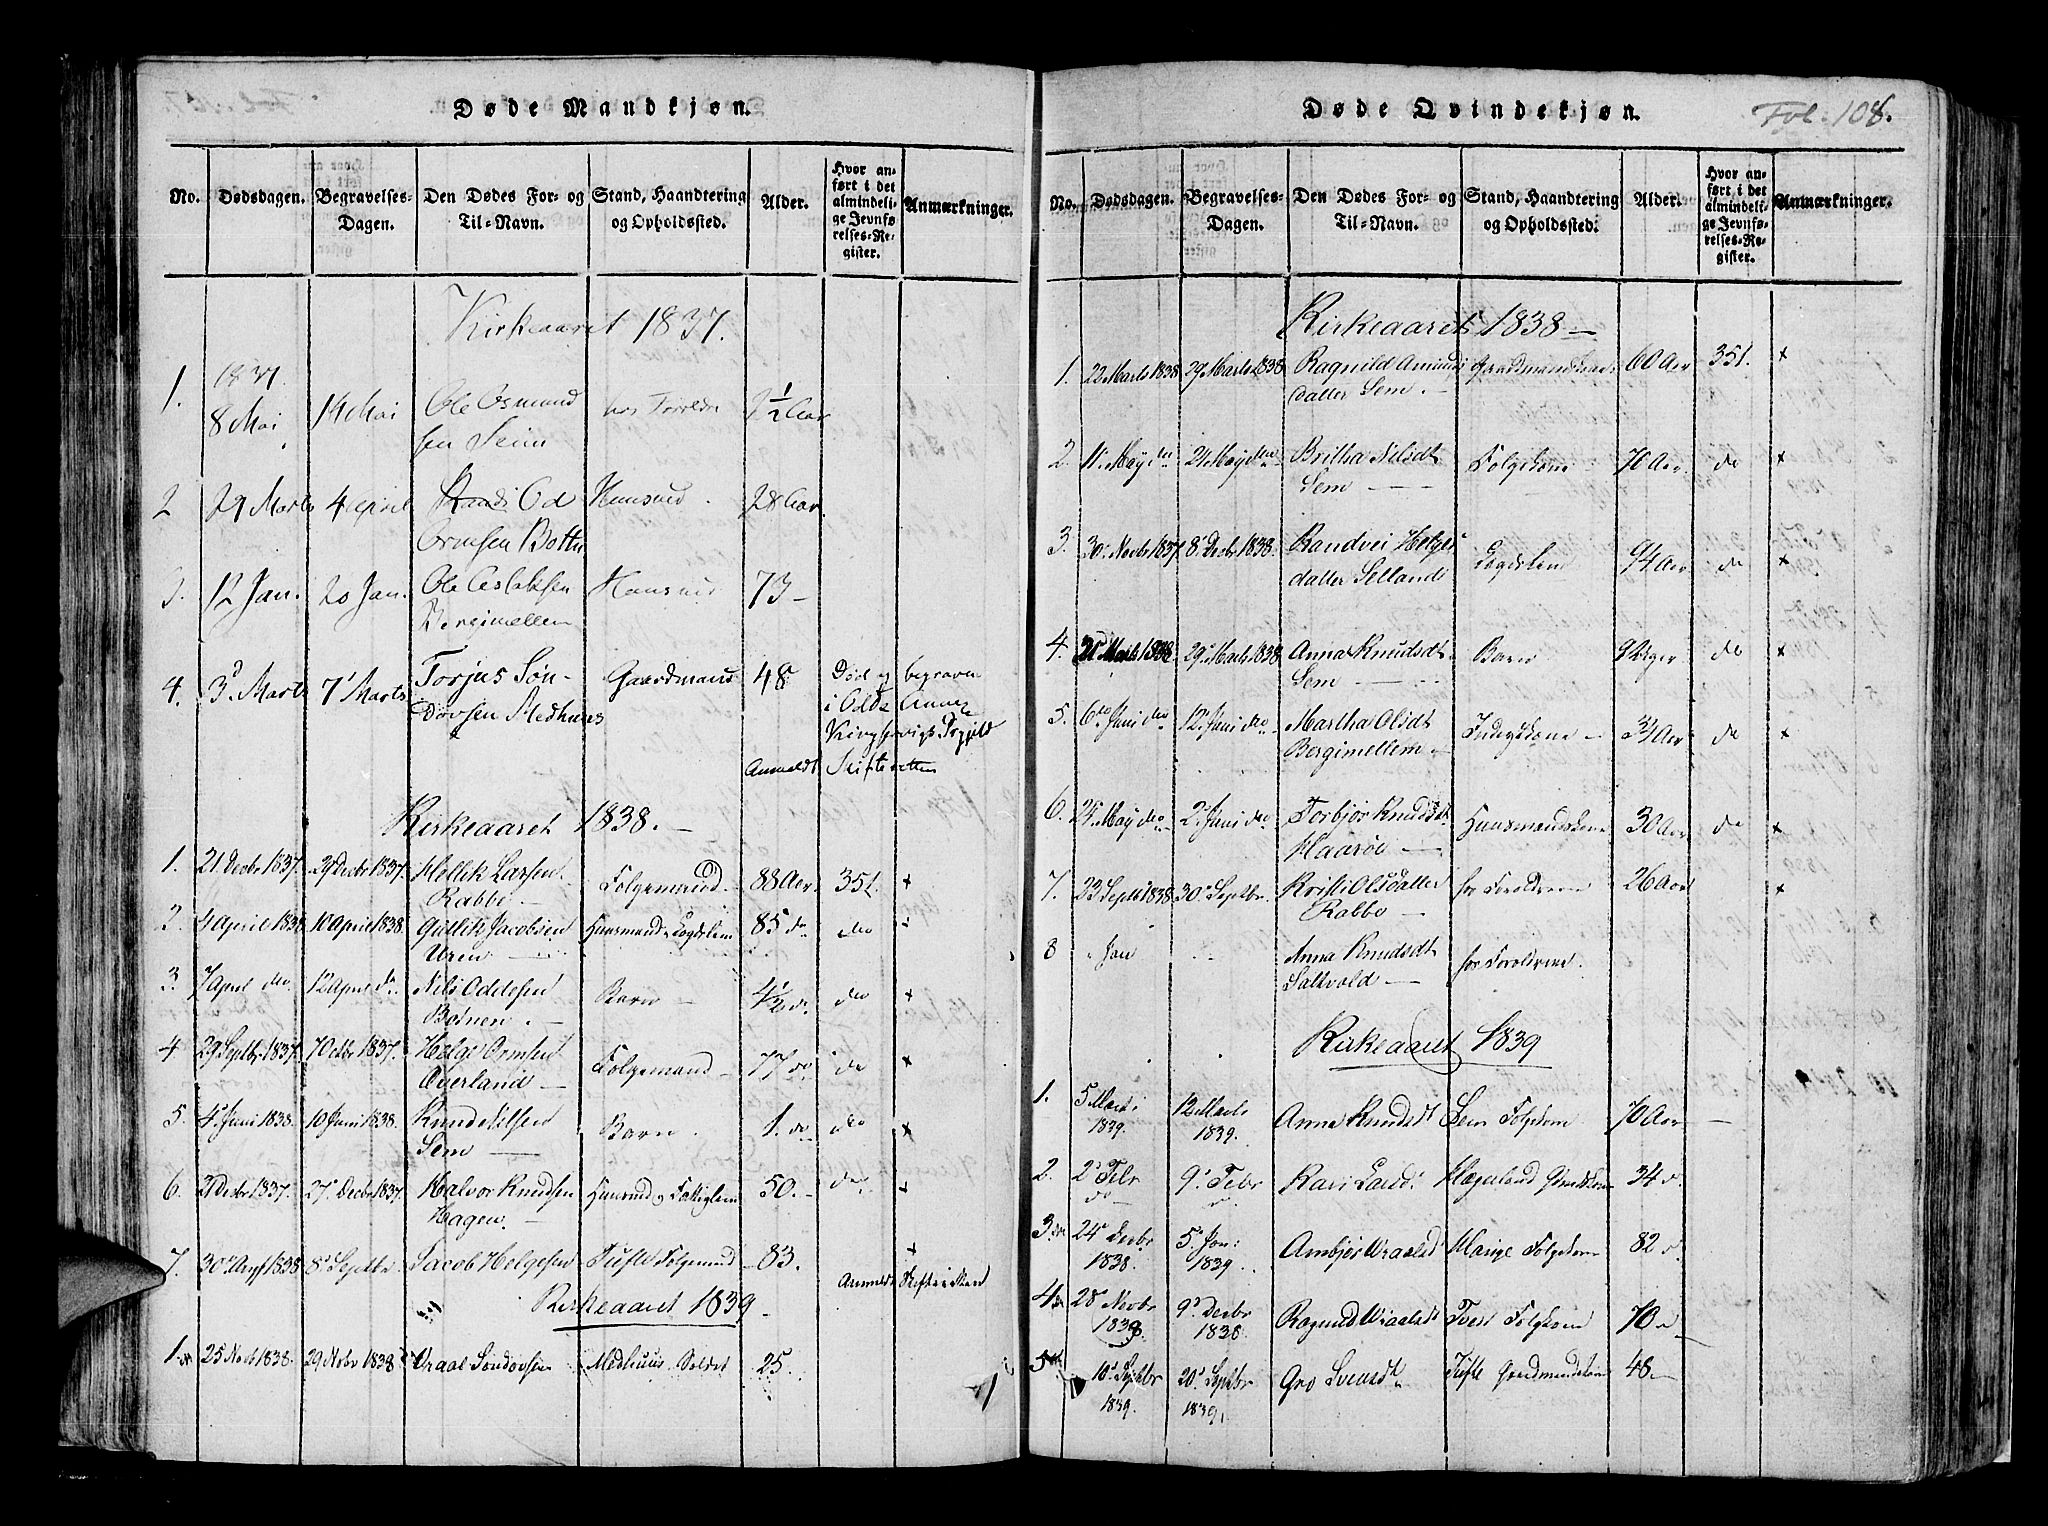 Døde Mandkjøn.
No. Dødsdagen. Begravelses-Dagen. Den Dødes For- og Til-Navn. Stand, Haandtering og Opholdssted. Alder. Hvor anført i det almindelige Jevnførelses-Register. Anmærkninger.
Kirkeaaret 1837.
1. 1837. 8 Mai 14 Mai Ole Osmundsen Seim hos Forældre 2½ Aar
2 29 Marts 4 April Od Ormsen Huusmd. 28 Aar.
3. 12 Jan. 20 Jan. Ole Aslaksen Bergimellem Huusmd 73 –
4. 3 Marts 7 Marts Torjus Søndovsen Medhuus Gaardmand 48 Død og begraven
i Odde Annex
Kingservigs Prgjeld
Anmeldt Skifteretten
Kirkeaaret 1838. –
1. 21 Decbr 1837. 29 Decbr 1837. Hellik Larsen Rabbe – Folgemand. 88 Aar. 351. +
2. 4 April 1838 10 April 1838. Gullik Jacobsen Uren – Huusmand & Lægdslem 85 do do +
3. 7 April do. 12 April do. Nils Oddesen Botnen. – Barn – 4½ do do +
4 29 Septbr. 1837. 7 Octbr 1837. Helge Ormsen Overland – Folgemand – 77 do do +
5. 4 Juni 1838. 10 Juni 1838. Knud Nilsen Sem – Barn. 1. do do +
6. Decbr 1837. 27 Decbr 1837. Halvor Knudsen Hagen. – Huusmd og Fattiglem 50. – do +
7. 30 Augt 1838 8 Septbr Jacob Helgesen Tufte Folgemand – 83. +
Anmeldt Skifteretten
Kirkeaaret 1839 –
1. 25 Novb 1838. 29 Nobr 1838 Vraal Sondovsen Medhuus Soldat 25.
Døde Qvindekjøn. Fol. 108.
No. Dødsdagen. Begravelses-Dagen. Den Dødes For- og Til-Navn. Stand, Haandtering og Opholdssted. Alder. Hvor anført i det almindelige Jevnførelses-Register. Anmærkninger.
Kirkeaaret 1838 –
1. 22 Marts 1838 29 Marts 1838 Ragnild Amundsdatter Sem – 60 Aar 351. +
2. 11 May do 24 May do Britha Nilsdt Sem – Folgekone 70 Aar. do +
3. 30 Novbr 1837 8 Decbr 1838. Randvei Helgesdatter Selland Lægdslem 94 Aar do +
4. 21 Marts 1838 29 Marts 1838 Anna Knudsdt Sem – Barn 9 Uger do +
5. 6te Juni do 12 Juni do Martha Olsdt Bergimellem – Aar do +
6. 25 May do 2 Juni do Torbjør Knudsdt Haarøe – Huusmandskone 30 Aar do +
7. 23 Septb 1838 30 Septbr. Kristi Olsdatter Rabbe – hos Foreldrene 26 Aar +
8 Jan Anna Knudsdt Saltvold – hos Foreldrene.
Kirkeaaret 1839
1. 5 Marts 1839. 12 Marts 1839. Anna Knudsdt Sem Folgekone 70 Aar –
2. 2 Febr do 9 Febr Kari Larsd. Hægeland 34
3. 24 Decbr 1838. 5 Jan: 1839. Ambjør Vraalsd Folgekone 82
4. 28 Novbr 1838. 9 Decbr 1838. Ragnild Vraalsdt Tveit Folgkone 70
5. 10 Septbr 1839. 20 Septbr 1839. Gro Svensdt Tufte Gaardmandskone 48 –